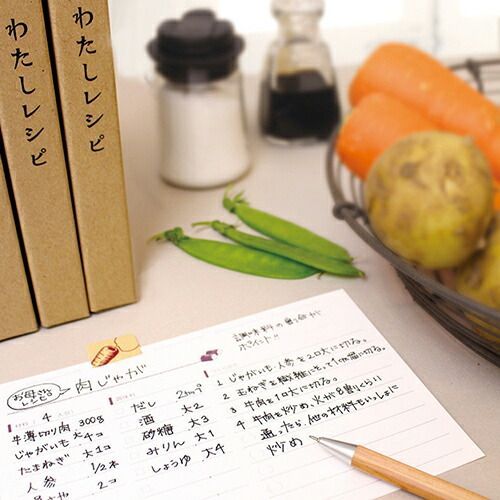 わたしレシピ
わたしレシピ
お母さんの
レシピ
肉じゃが
調味料の
ポイント!!
4
牛薄切り肉 300g
じゃがいも 大4コ
たまねぎ 大1コ
人参 1/2本
2コ
だし 2カップ
酒 大2
砂糖 大3
みりん 大1
しょうゆ 大4
1 じゃがいも、人参を1口大に切る。
2 玉ねぎを繊維にそって1cm幅に切る。
3 牛肉を1口大に切る。
4 牛肉を炒め、火が8割ぐらい
通ったら、他の材料もいっしょに
炒め